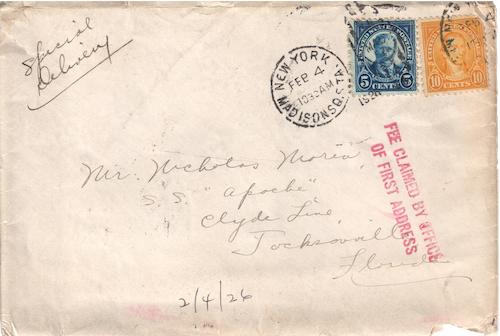 Special
Delivery
NEW YORK, N.Y.
FEB 4
1030AM
MADISON SQ. STA.
1926
UNITED STATES POSTAGE
5 CENTS 5
10 CENTS 10
FEE CLAIMED BY OFFICE
OF FIRST ADDRESS
Mr. Nicholas Moria
S.S. "Apache"
Clyde Line,
Jacksonville
Florida
2/4/26